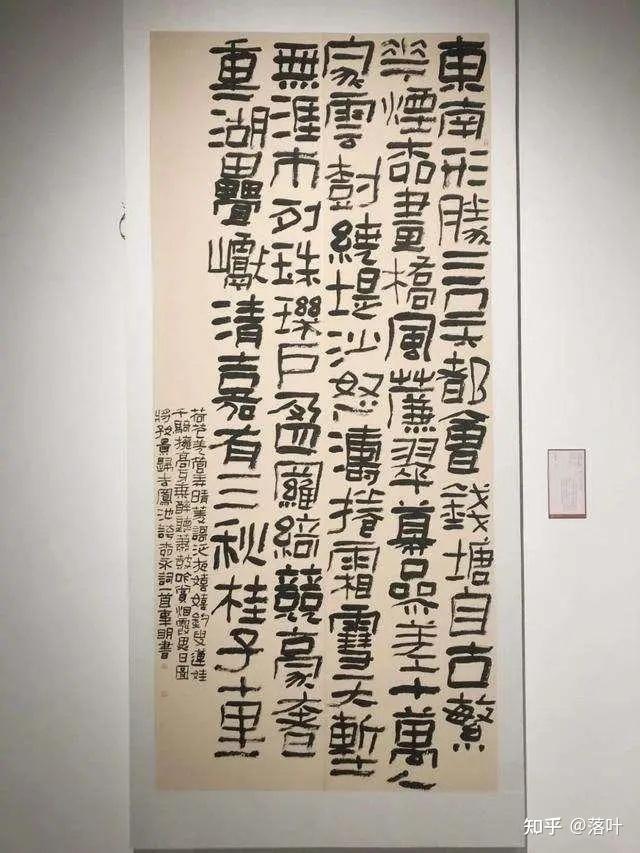 東南形勝三吴都會錢塘自古繁
華煙柳畫橋風簾翠幕參差十萬人
家雲樹繞堤沙怒濤捲霜雪天塹
無涯市列珠璣戶盈羅綺競豪奢
重湖疊巘清嘉有三秋桂子十里
荷花羌管弄晴菱謳泛夜嬉嬉釣叟蓮娃
千騎擁高牙乘醉聽簫鼓吟賞烟霞異日圖
將好景歸去鳳池誇柳永詞一首明書
知乎 @落叶